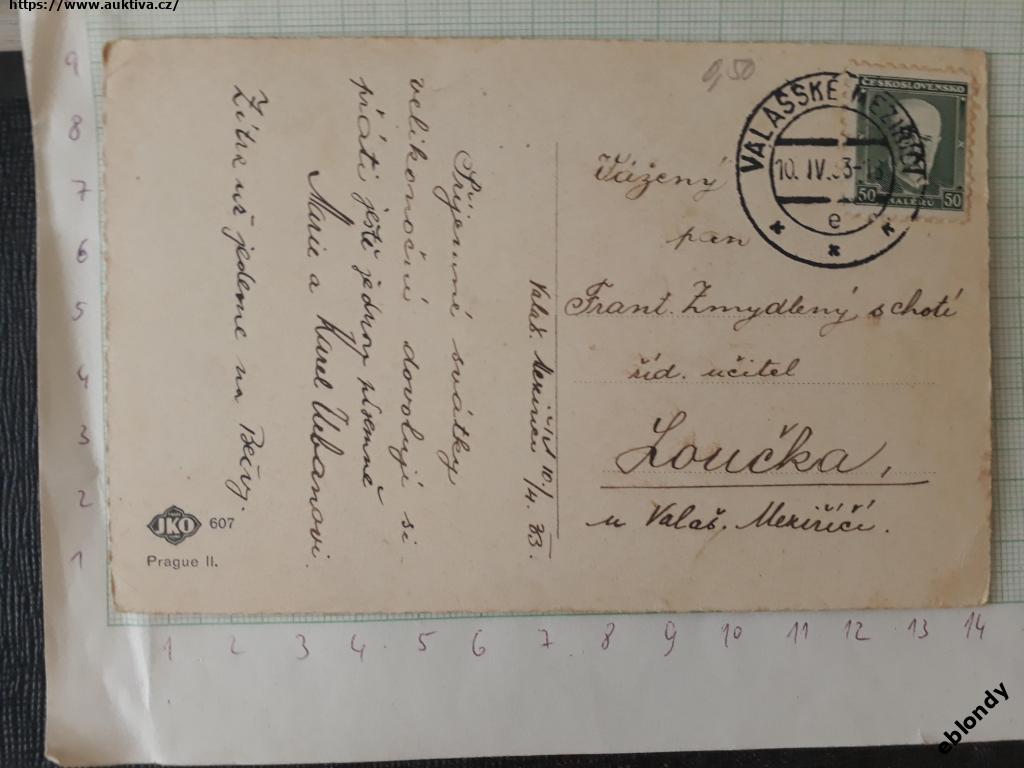 https://www.auktiva.cz/
9
8
7
6
5
4
3
2
1
0,50
ČESKOSLOVENSKO
50 HALÉŘŮ 50
VALAŠSKÉ MEZIŘÍČÍ
10. IV. 33-
e
Vážený
pan
Frant. Zmydlený s chotí
říd. učitel
Loučka,
u Valaš. Meziříčí.
Valaš. Meziříčí 10./4. 33.
Příjemné svátky
velikonoční dovolují si
přáti ještě jednou písemně
Marie a Karel Urbanovi.
Zítra už jedeme na Bečvy.
JKO 607
Prague II.
1 2 3 4 5 6 7 8 9 10 11 12 13 14
eblondy